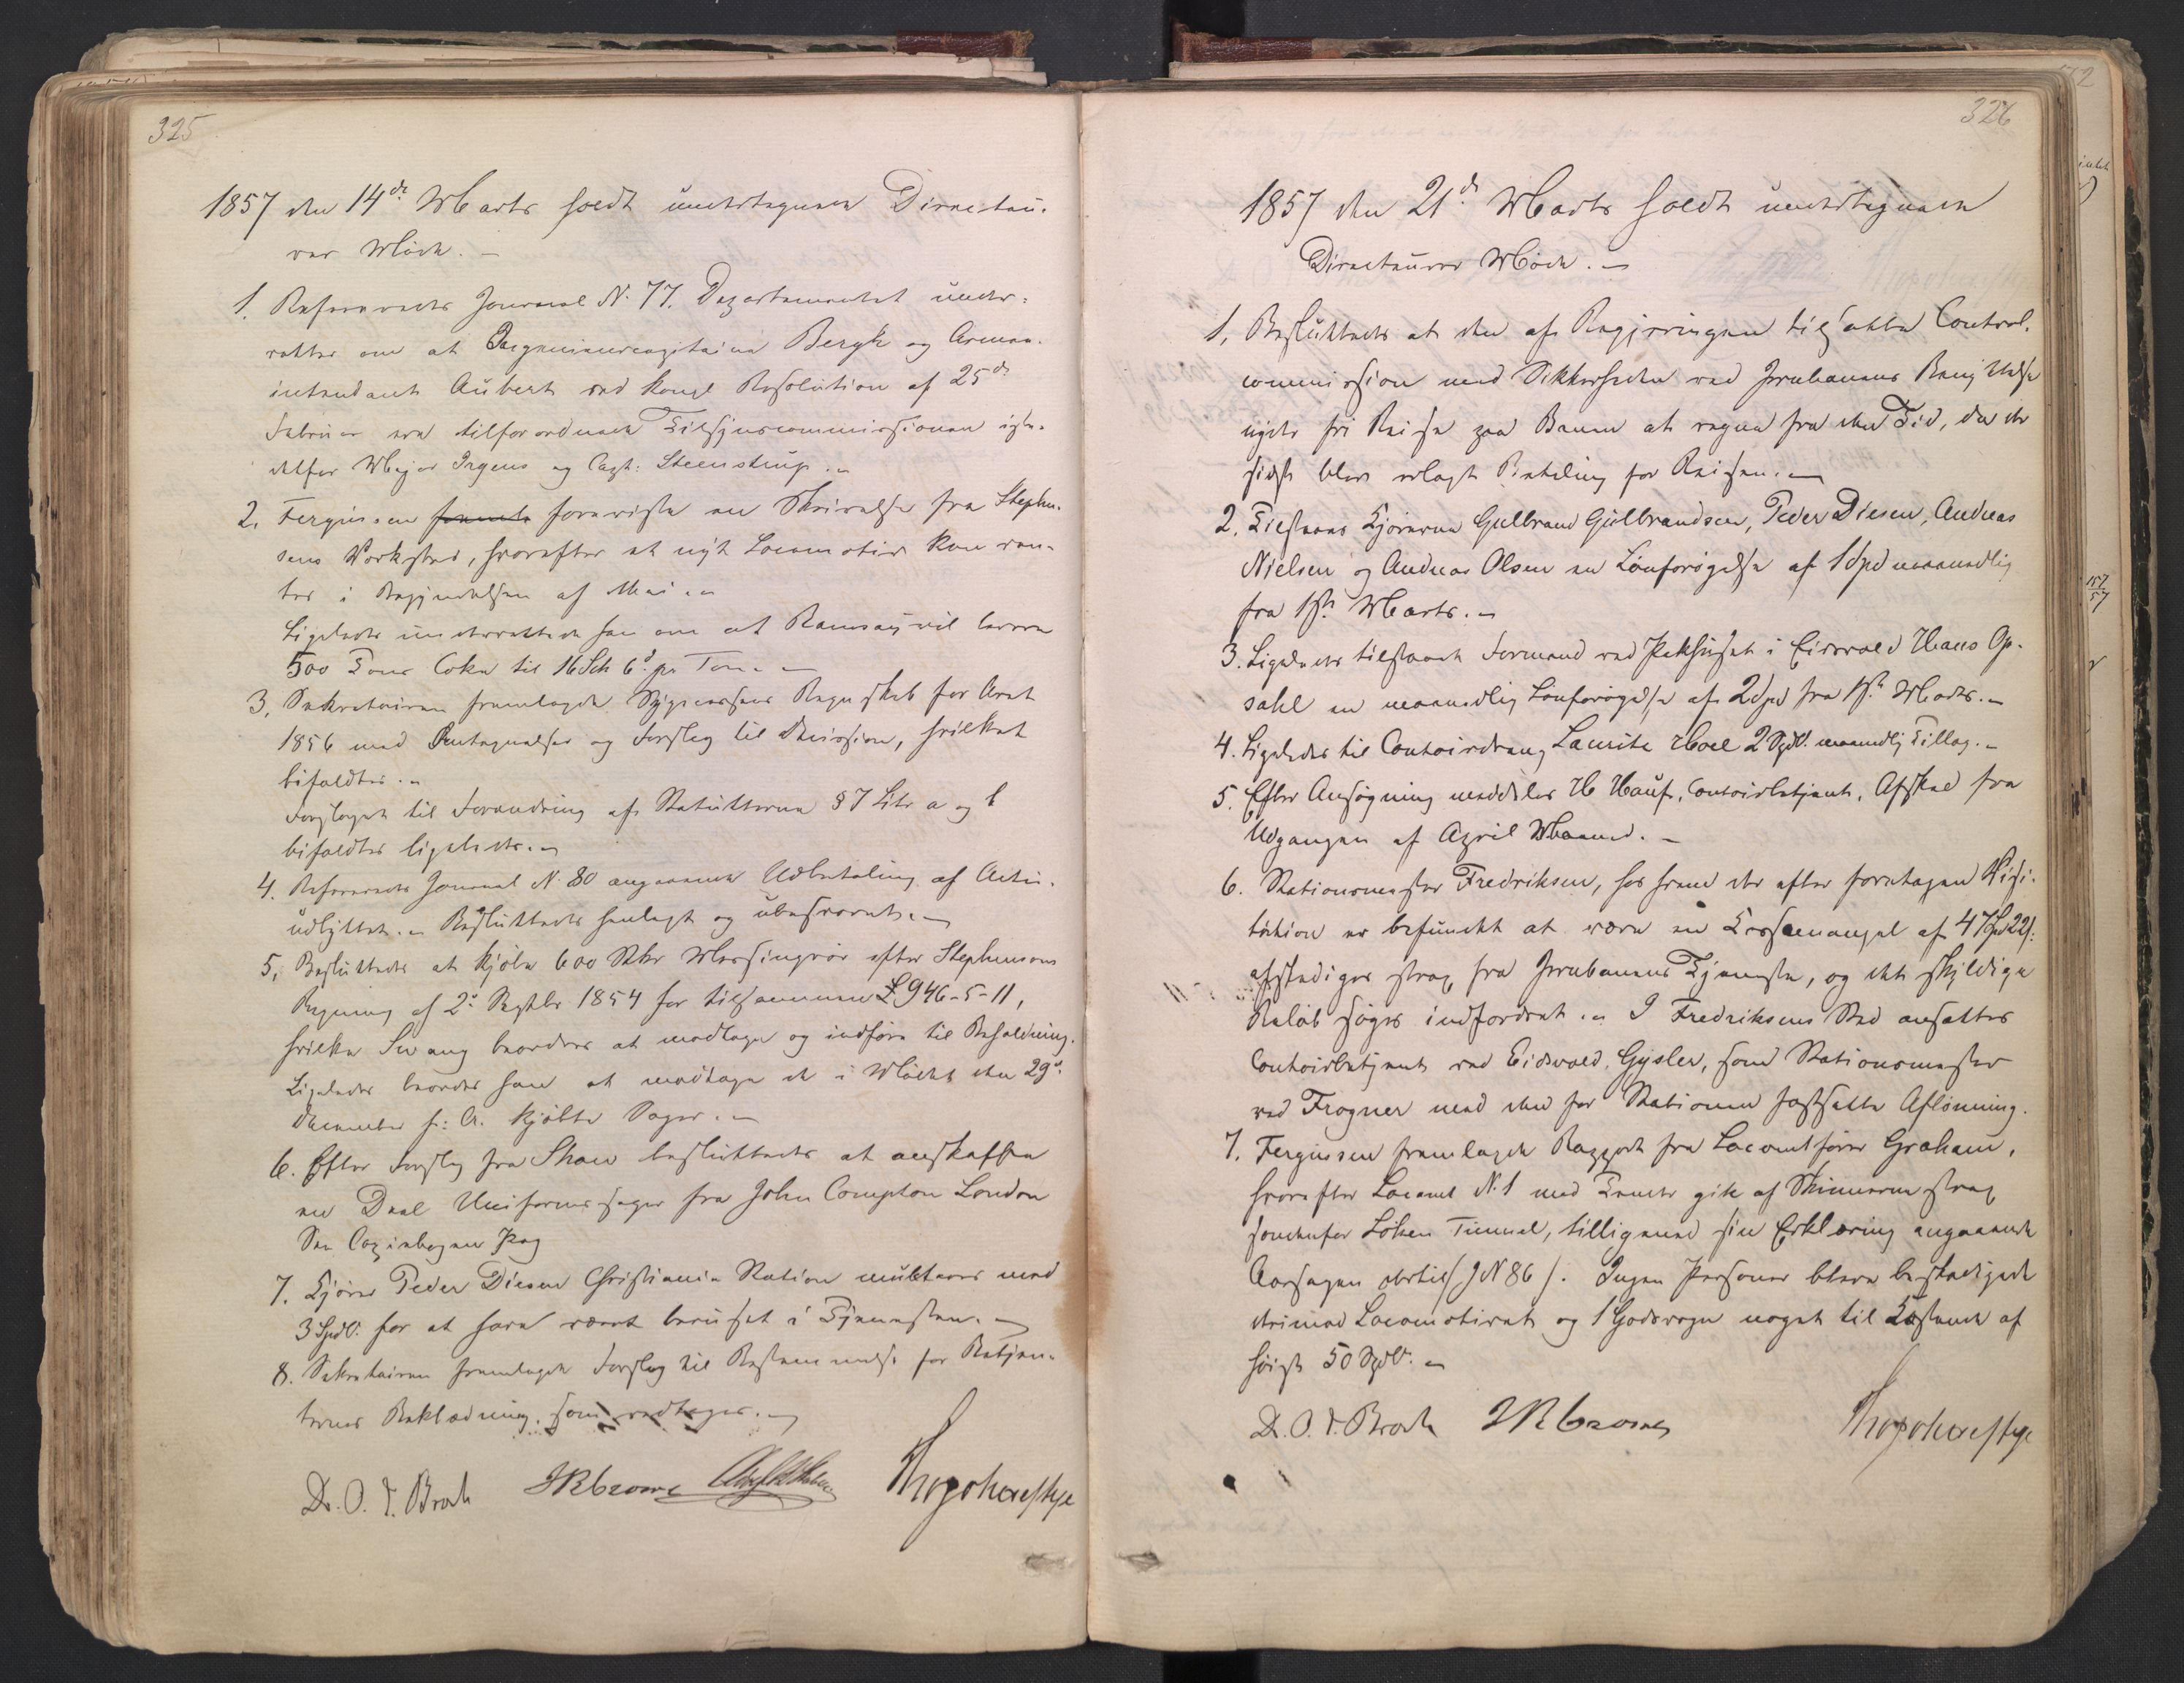 325
1857 den 14de Marts holdt undertegnede Directeu-
rer Møde. -
1. Refereredes Journal N. 77. Departementet under-
retter om at Ingenieurcapitain Bergh og Armee-
intendant Aubert ved kongl Resolution af 25de
Februar ere tilforordnede Tilsynscommissionen iste-
detfor Major Irgens og Capt: Steenstrup. -
2. Fergusson foreviste en Skrivelse fra Stephen-
sens Værksted, hvorefter et nyt Locomotiv kan ven-
tes i Begyndelsen af Mai. -
Ligeledes underrettede han om at Ramsay vil levere
500 Tons Coke til 16 Sch 6d pr Ton. -
3. Sekretairen fremlagde Sygecassens Regnskab for Aaret
1856 med Antegnelser og Forslag til Decission, hvilket
bifaldtes. -
Forslaget til Forandring af Statutterne § 7 Litr a og b
bifaldtes ligeledes. -
4. Refereredes Journal N. 80 angaaende Udbetaling af Actie-
udbyttet. - Besluttedes henlagt og ubesvaret. -
5. Besluttedes at kjøbe 600 Stkr Messingrør efter Stephensons
Regning af 2d Septbr 1854 for tilsammen £ 946-5-11,
hvilke Svang beordres at modtage og indføre til Beholdning.
Ligeledes beordres han at modtage de i Mødet den 29d
December f: A. kjøbte Sager. -
6. Efter Forslag fra Shaw besluttedes at anskaffe
en Deel Uniformssager fra John Compton London
See Copiebogen Pag
7. Kjører Peder Diesen Christiania Station mulkteres med
3 Spdlr. for at have været beruset i Tjenesten. -
8. Sekretairen fremlagde Forslag til Bestemmelse for Betjen-
ternes Beklædning, som vedtoges. -
Dr. O. J. Broch JRCrowe
326
1857 den 21de Marts holdt undertegnede
Directeurer Møde. -
1. Besluttedes at den af Regjeringen tilsatte Control-
commission med Sikkerheden ved Jernbanens Benyttelse
nyder fri Reise paa Banen at regne fra den Tid, da der
sidst blev erlagt Betaling for Reisen. -
2. Tilstaaes Kjørerne Gulbrand Gulbrandsen, Peder Diesen, Andreas
Nielsen og Andreas Olsen en Lønforøgelse af 1 Spd maanedlig
fra 1ste Marts. -
3. Ligeledes tilstaaes Formand ved Pakhuset i Eidsvold Hans Op-
sahl en maanedlig Lønforøgelse af 2 Spd fra 1ste Marts. -
4. Ligeledes til Contoirdreng Lauritz Hoel 2 Spdlr. maanedlig Tillæg. -
5. Efter Ansøgning meddeles H Hauff, Contoirbetjent, Afsked fra
Udgangen af April Maaned. -
6. Stationsmester Fredriksen, hos hvem der efter foretagen Visi-
tation er befundet at være en Cassemangel af 47 Spd 22 s:
afskediges strax fra Jernbanens Tjeneste, og det skyldige
Beløb søges inddrevet. - I Fredriksens Sted ansættes
Contoirbetjent ved Eidsvold, Gysler, som Stationsmester
ved Frogner med den for Stationen fastsatte Aflønning.
7. Fergusson fremlagde Rapport fra Locomtfører Graham,
hvorefter Locomt N. 1 med Tender gik af Skinnerne strax
søndenfor Løken Tunnel, tilligemed sin Erklæring angaaende
Aarsagen dertil (J N 86). Ingen Personer bleve beskadigede
derimod Locomotivet og 1 Godsvogn noget til Kostende af
høist 50 Spdlr. -
Dr. O. J. Broch JRCrowe